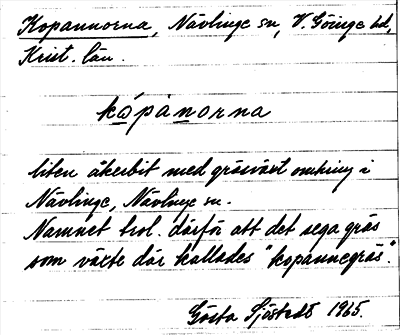 Kopannorna, Nävlinge sn, V. Göinge hd,
Krist. län.
kópànorna
liten åkerbit med gräsväxt omkring i
Nävlinge, Nävlinge sn.
Namnet trol. därför att det sega gräs
som växte där kallades "kopannegräs".
Gösta Sjöstedt 1965.